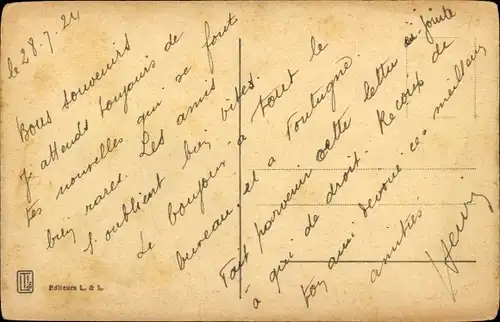 le 28.7.24
Bons souvenirs
J'attends toujours de
tes nouvelles qui se font
bien rares. Les amis
s'oublient bien vites.
Le bonjour à tout le
bureau, et a
Fait parvenir cette lettre ci jointe
à qui de droit. Reçois de
ton ami dévoué ces meilleurs
amitiés
Henri
Editeurs L. & L.